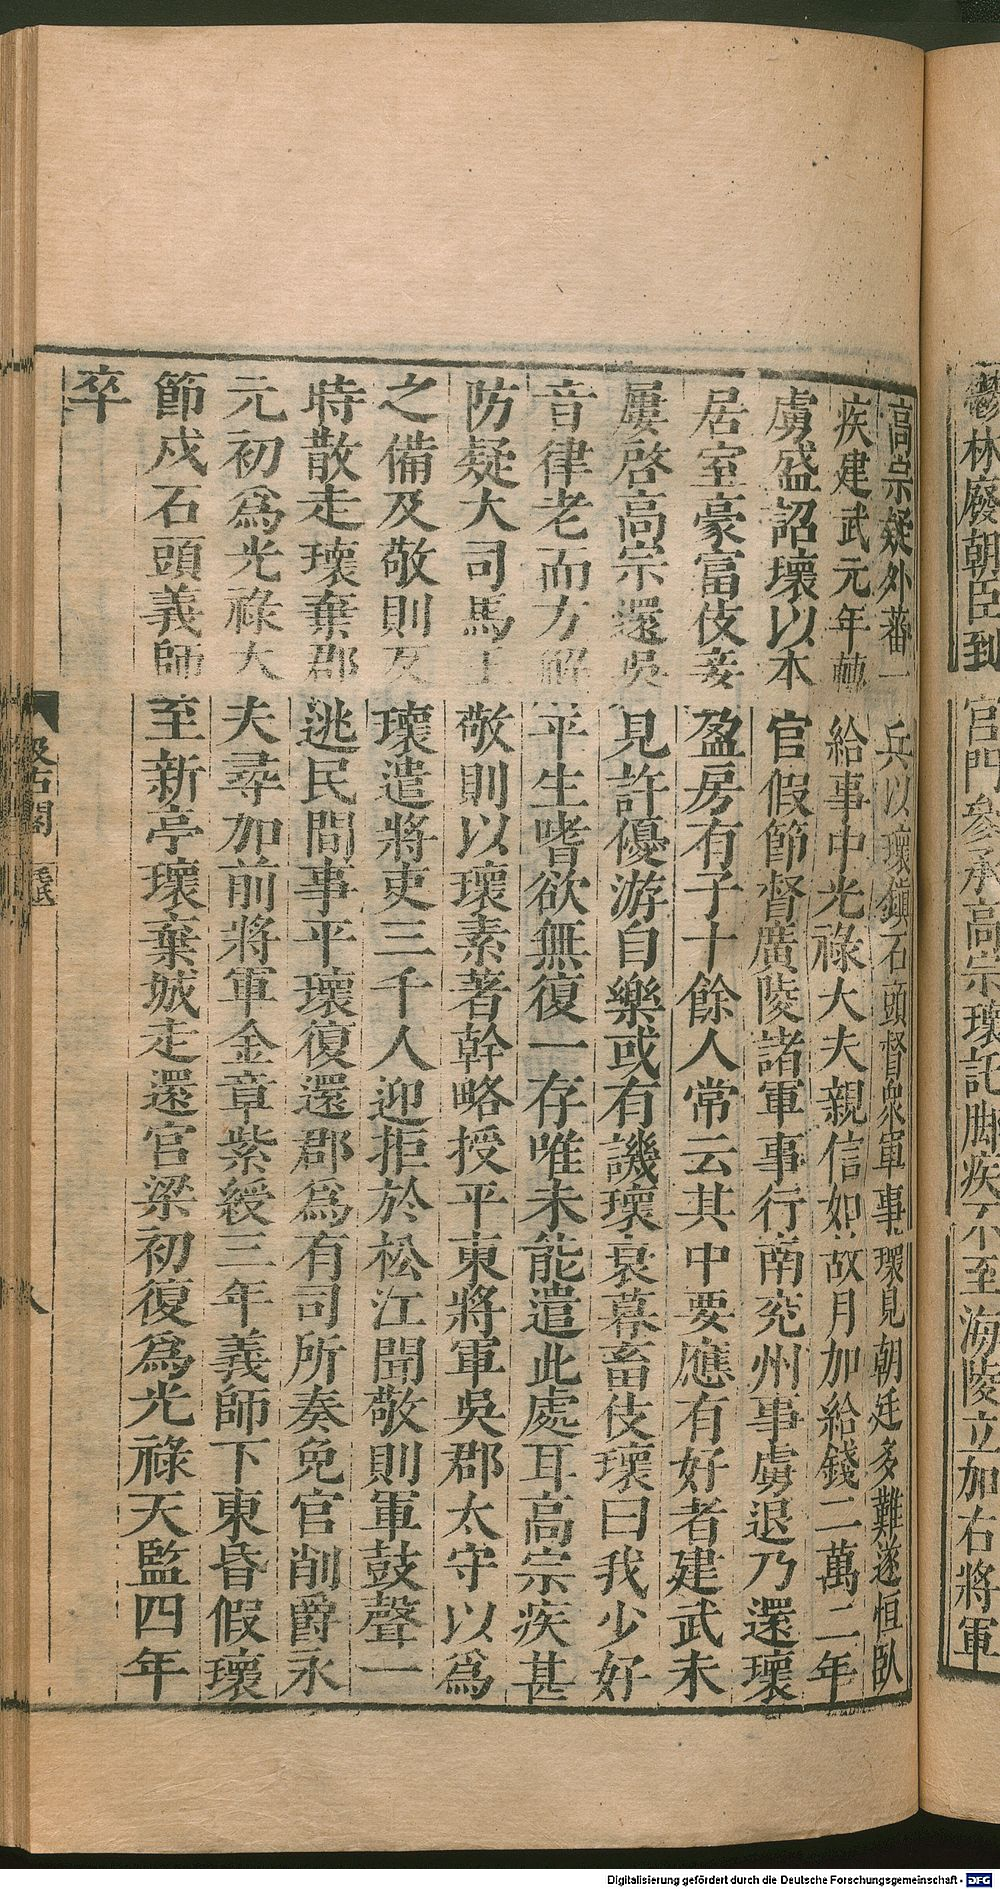 鬱林廢朝臣到宮門參承高宗瓌託脚疾不至海陵立加右將軍
高宗疑外蕃一兵以瓌鎮石頭督衆軍事瓌見朝廷多難遂恒臥
疾建武元年轉給事中光祿大夫親信如故月加給錢二萬二年
虜盛詔瓌以本官假節督廣陵諸軍事行南兖州事虜退乃還瓌
居室豪富伎妾盈房有子十餘人常云其中要應有好者建武末
屢啓高宗還吳見許優游自樂或有譏瓌衰暮畜伎瓌曰我少好
音律老而方解平生嗜欲無復一存唯未能遣此處耳高宗疾甚
防疑大司馬王敬則以瓌素著幹略授平東將軍吳郡太守以爲
之備及敬則反瓌遣將吏三千人迎拒於松江聞敬則軍鼓聲一
時散走瓌棄郡逃民間事平瓌復還郡爲有司所奏免官削爵永
元初爲光祿大夫尋加前將軍金章紫綬三年義師下東昏假瓌
節戍石頭義師至新亭瓌棄城走還宮梁初復爲光祿天監四年
卒
汲古閣 毛氏
八
Digitalisierung gefördert durch die Deutsche Forschungsgemeinschaft - DFG